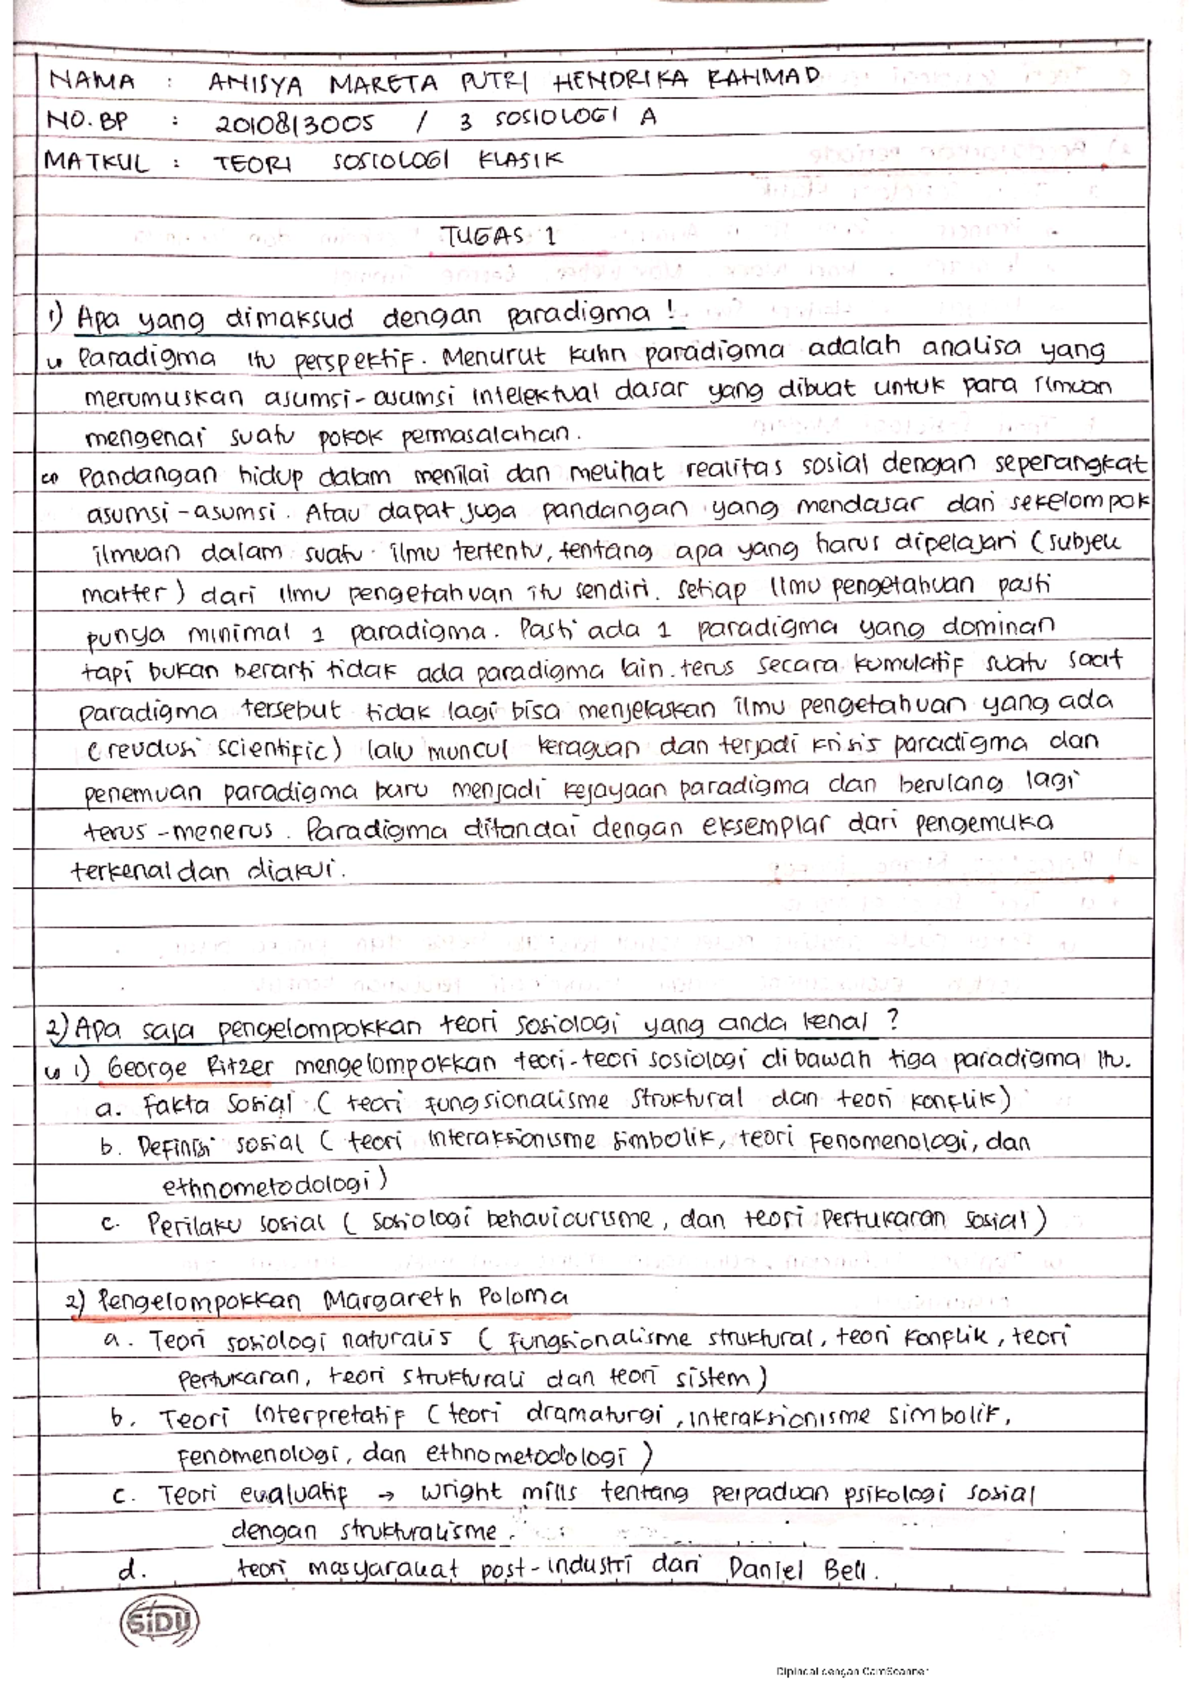 NAMA : ANISYA MARETA PUTRI HENDRIKA RAHMAD
NO. BP : 2010813005 / 3 SOSIOLOGI A
MATKUL : TEORI SOSIOLOGI KLASIK
TUGAS 1
1) Apa yang dimaksud dengan paradigma !
↳ Paradigma itu perspektif. Menurut Kuhn paradigma adalah analisa yang
merumuskan asumsi-asumsi intelektual dasar yang dibuat untuk para ilmuan
mengenai suatu pokok permasalahan.
↳ Pandangan hidup dalam menilai dan melihat realitas sosial dengan seperangkat
asumsi-asumsi. Atau dapat juga pandangan yang mendasar dari sekelompok
ilmuan dalam suatu ilmu tertentu, tentang apa yang harus dipelajari (subjek
matter) dari ilmu pengetahuan itu sendiri. Setiap ilmu pengetahuan pasti
punya minimal 1 paradigma. Pasti ada 1 paradigma yang dominan
tapi bukan berarti tidak ada paradigma lain. terus secara kumulatif suatu saat
paradigma tersebut tidak lagi bisa menjelaskan ilmu pengetahuan yang ada
(revolusi scientific) lalu muncul keraguan dan terjadi krisis paradigma dan
penemuan paradigma baru menjadi kejayaan paradigma dan berulang lagi
terus-menerus. Paradigma ditandai dengan eksemplar dari pengemuka
terkenal dan diakui.
2) Apa saja pengelompokkan teori sosiologi yang anda kenal ?
↳ 1) George Ritzer mengelompokkan teori-teori sosiologi di bawah tiga paradigma itu.
a. Fakta Sosial (teori fungsionalisme struktural dan teori konflik)
b. Definisi sosial (teori interaksionisme simbolik, teori fenomenologi, dan
ethnometodologi)
c. Perilaku sosial (sosiologi behaviourisme, dan teori pertukaran sosial)
2) Pengelompokkan Margareth Poloma
a. Teori sosiologi naturalis (fungsionalisme struktural, teori konflik, teori
pertukaran, teori strukturali dan teori sistem)
b. Teori Interpretatif (teori dramaturgi, interaksionisme simbolik,
fenomenologi, dan ethnometodologi)
c. Teori evaluatif → Wright mills tentang perpaduan psikologi sosial
dengan strukturalisme.
d. teori masyarakat post-industri dari Daniel Bell.
SiDU
Dipindai dengan CamScanner